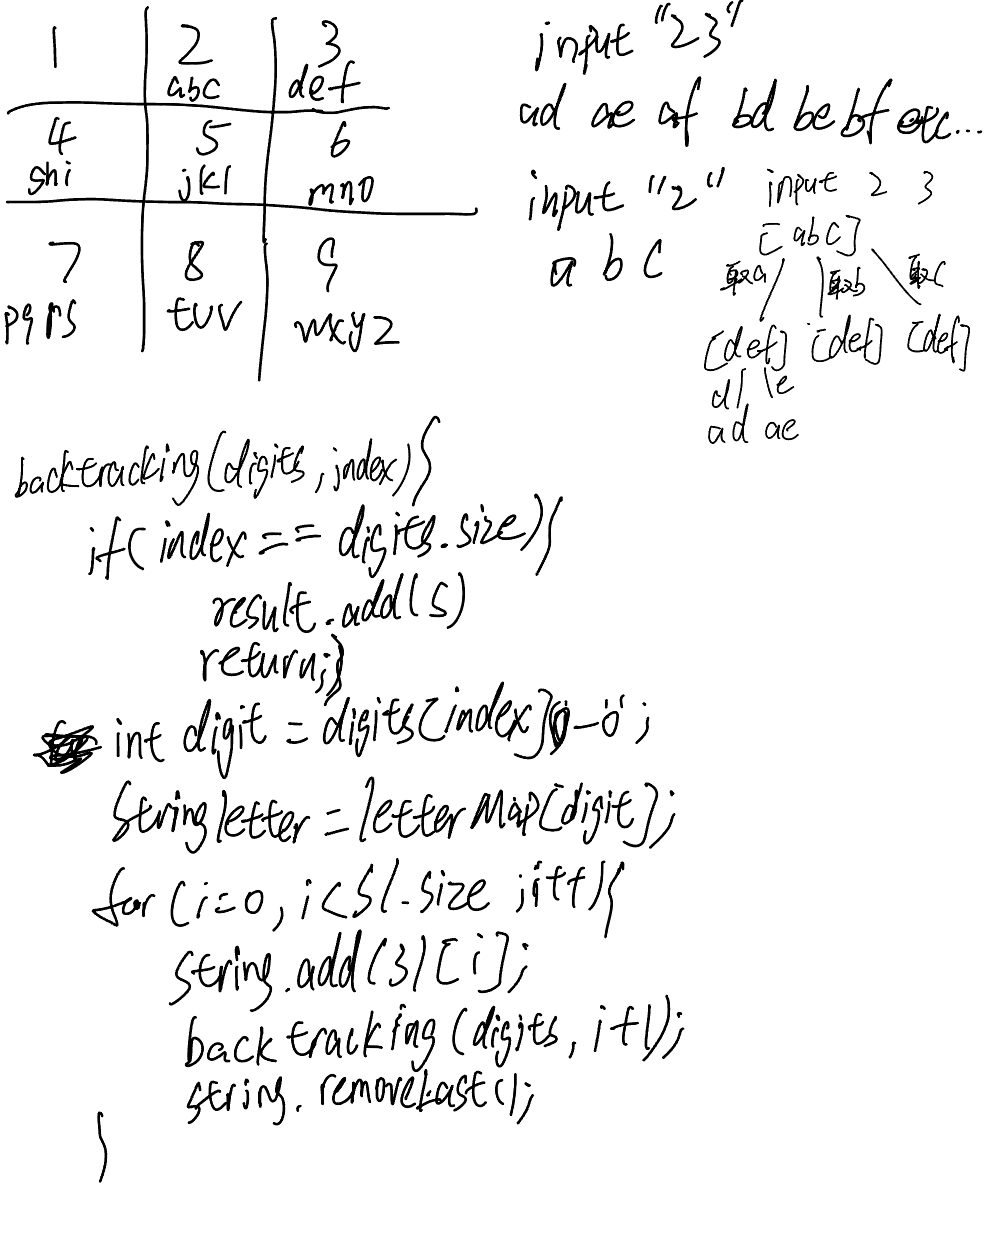 1 2 3
abc def
4 5 6
ghi jkl mno
7 8 9
pqrs tuv wxyz
input "23"
ad ae af bd be bf etc...
input "2"
a b c
input 2 3
[abc]
取a 取b 取c
[def] [def] [def]
d e
ad ae
backtracking(digits, index){
if(index == digits.size){
result.add(s)
return;}
int digit = digits[index]-'0';
String letter = letterMap[digit];
for (i=0, i<sl.size ;i++){
string.add(3)[i];
backtracking(digits, i+1);
string.removeLast();
}